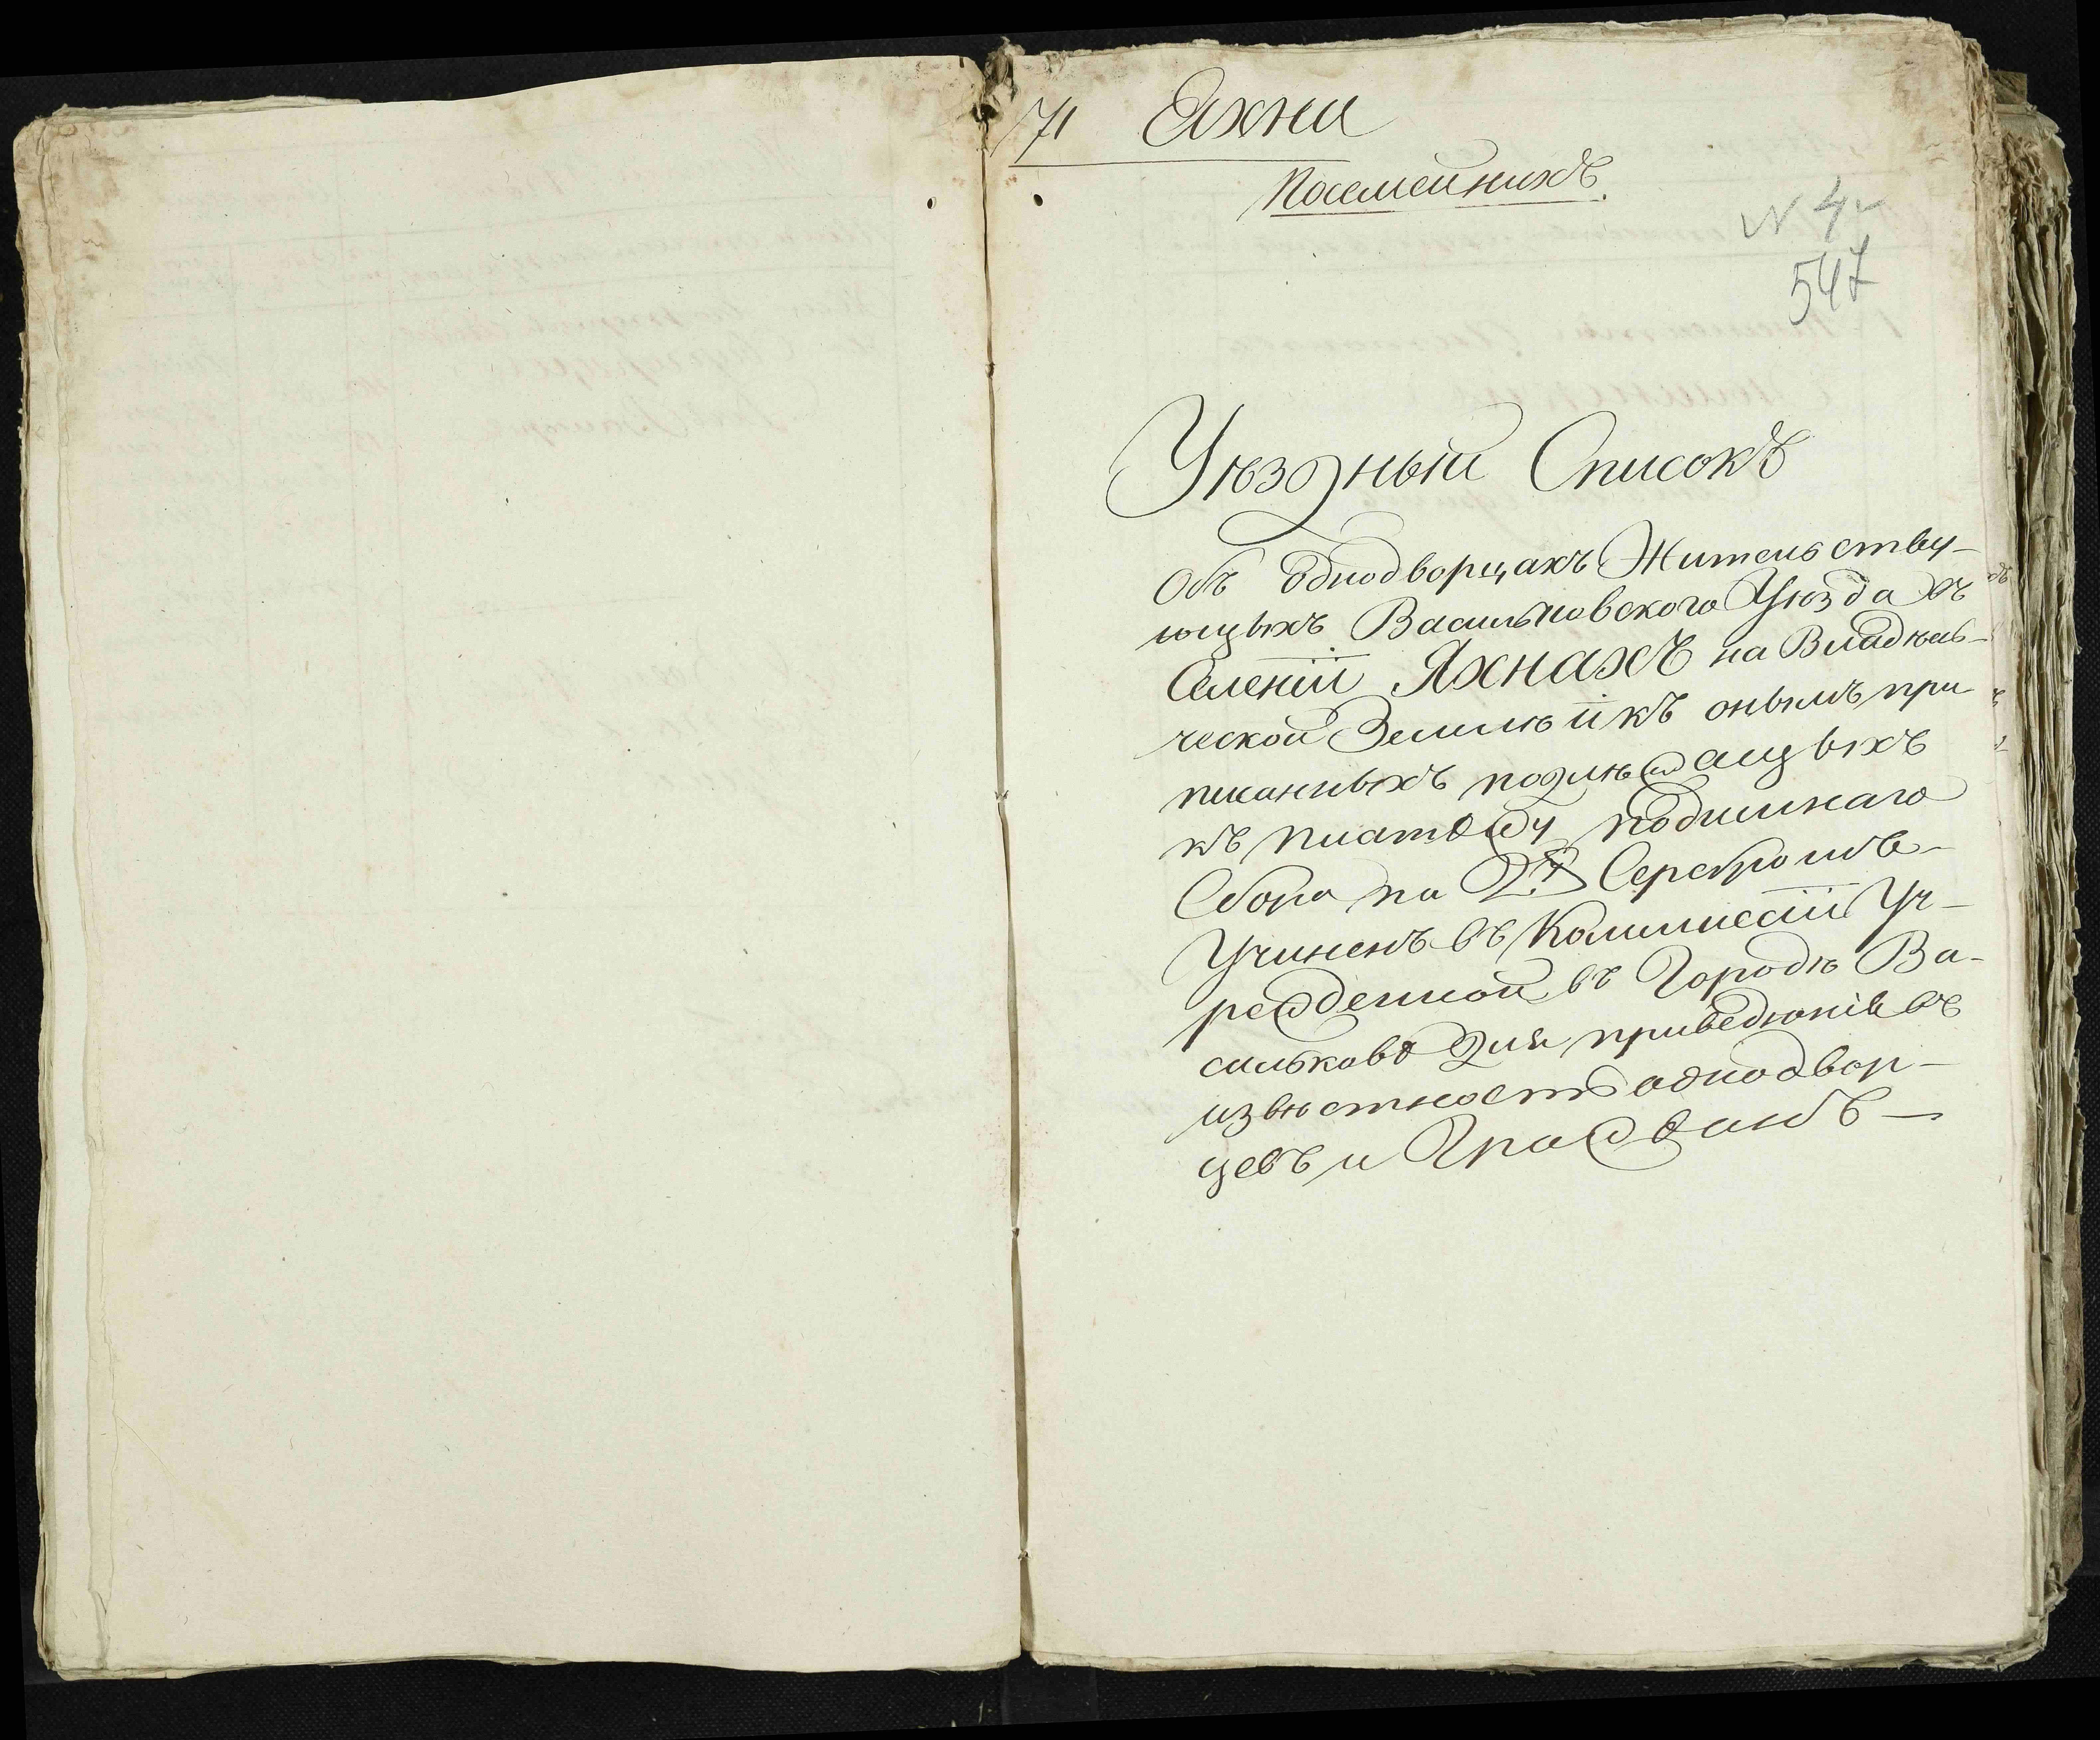 71 Яхни
Посемейникъ.
N 4
547
Уѣздный Списокъ
Объ Однодворцахъ Жительству-
ющыхъ Васильковского Уѣзда въ
Селеніи Яхнахъ на Владѣль-
ческой Землѣ и къ онымъ при
писанныхъ подлежащыхъ
къ платежу подимнаго
Сбора по 2 Серебромъ
Учиненъ въ Коммисіи Уч-
режденной въ Городѣ Ва-
сильковѣ для приведѣнія въ
извѣстность однодвор-
цевъ и Гражданъ —